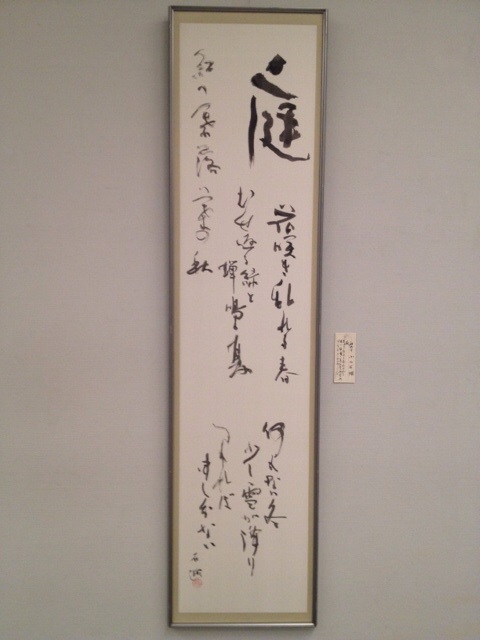 庭
花咲き乱れる春
むせ返る緑と
蝉鳴く夏
紅の葉落 秋
何も無い冬
少し雪が降り
つもれば
申し分ない